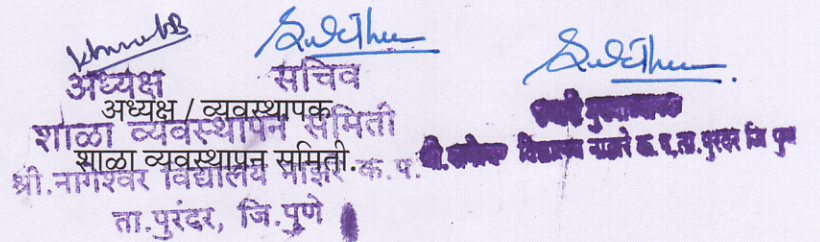 अध्यक्ष सचिव
अध्यक्ष / व्यवस्थापक
शाळा व्यवस्थापन समिती
शाळा व्यवस्थापन समिती.
श्री.नागेश्वर विद्यालय नाझरे क.प.
ता.पुरंदर, जि.पुणे
विद्यालय नाझरे क.प,ता.पुरंदर जि पुणे